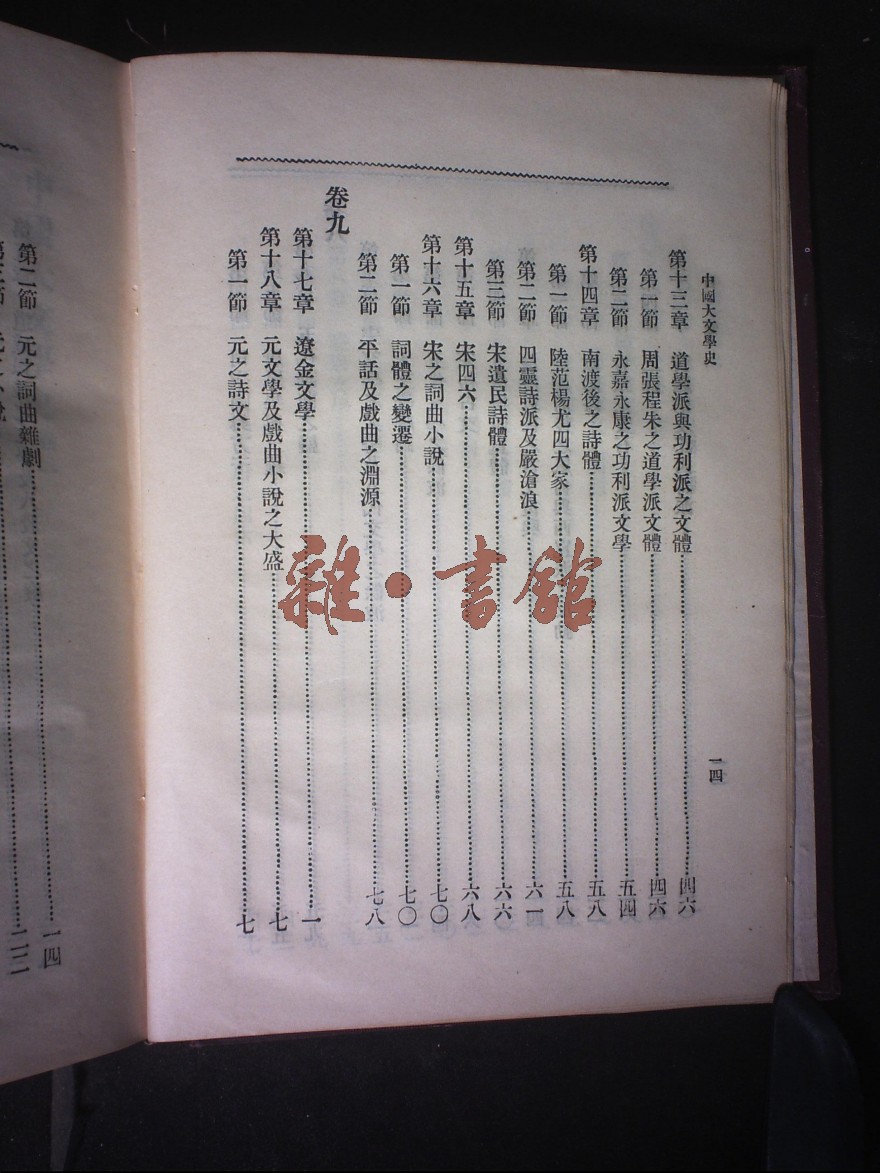 中國大文學史
一四
第十三章 道學派與功利派之文體……四六
第一節 周張程朱之道學派文體……四六
第二節 永嘉永康之功利派文學……五四
第十四章 南渡後之詩體……五八
第一節 陸范楊尤四大家……五八
第二節 四靈詩派及嚴滄浪……六一
第三節 宋遺民詩體……六六
第十五章 宋四六……六八
第十六章 宋之詞曲小說……七〇
第一節 詞體之變遷……七〇
第二節 平話及戲曲之淵源……七八
卷九
第十七章 遼金文學……一
第十八章 元文學及戲曲小說之大盛……七
第一節 元之詩文……七
第二節 元之詞曲雜劇……一四
雜·書館